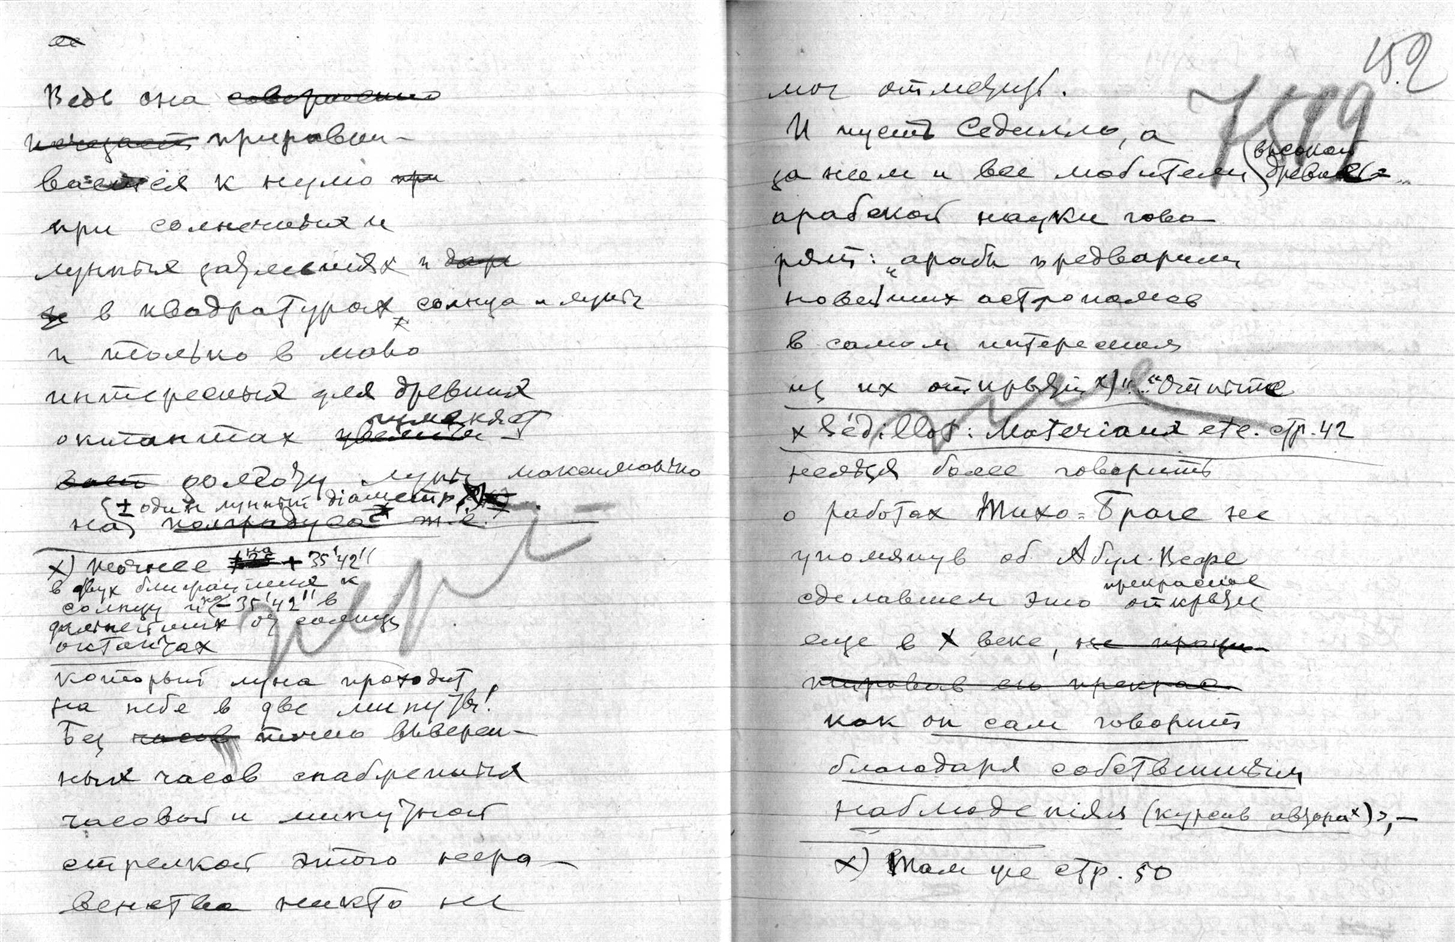 ее
Ведь она совершенно
исчезает приравни-
вается к нулю при
при солнечных и
лунных затмениях и
в квадратурах солнца и луны
и только в мало
интересных для древних
октантах изменяет
долготу луны максимально
(± один лунный диаметр x)
на полградуса же.
x) Точнее на + 35'42''
в двух ближайших к
солнцу и на - 35'42'' в
дальнейших от солнца
октантах
который луна проходит
на небе в две минуты!
Без часов точно выверен-
ных часов снабженных
часовой и минутной
стрелкой этого нера-
венства никто не
152
7599
мог отметить.
И пусть Седилло, а
за ним и все любители (высокой
древне=
арабской науки гово
рят: „арабы предварили
новейших астрономов
в самом интересном
из их открытий x)". "Отныне
x Sédillot: Materiaux etc. стр. 42
нельзя более говорить
о работах Тихо=Браге не
упомянув об Абул-Вефе
сделавшем это прекрасное открытие
еще в X веке, не проци-
тировав его прекрас-
как он сам говорит
благодаря собственным
наблюдениям (курсив автора x)», —
x) Там же стр. 50